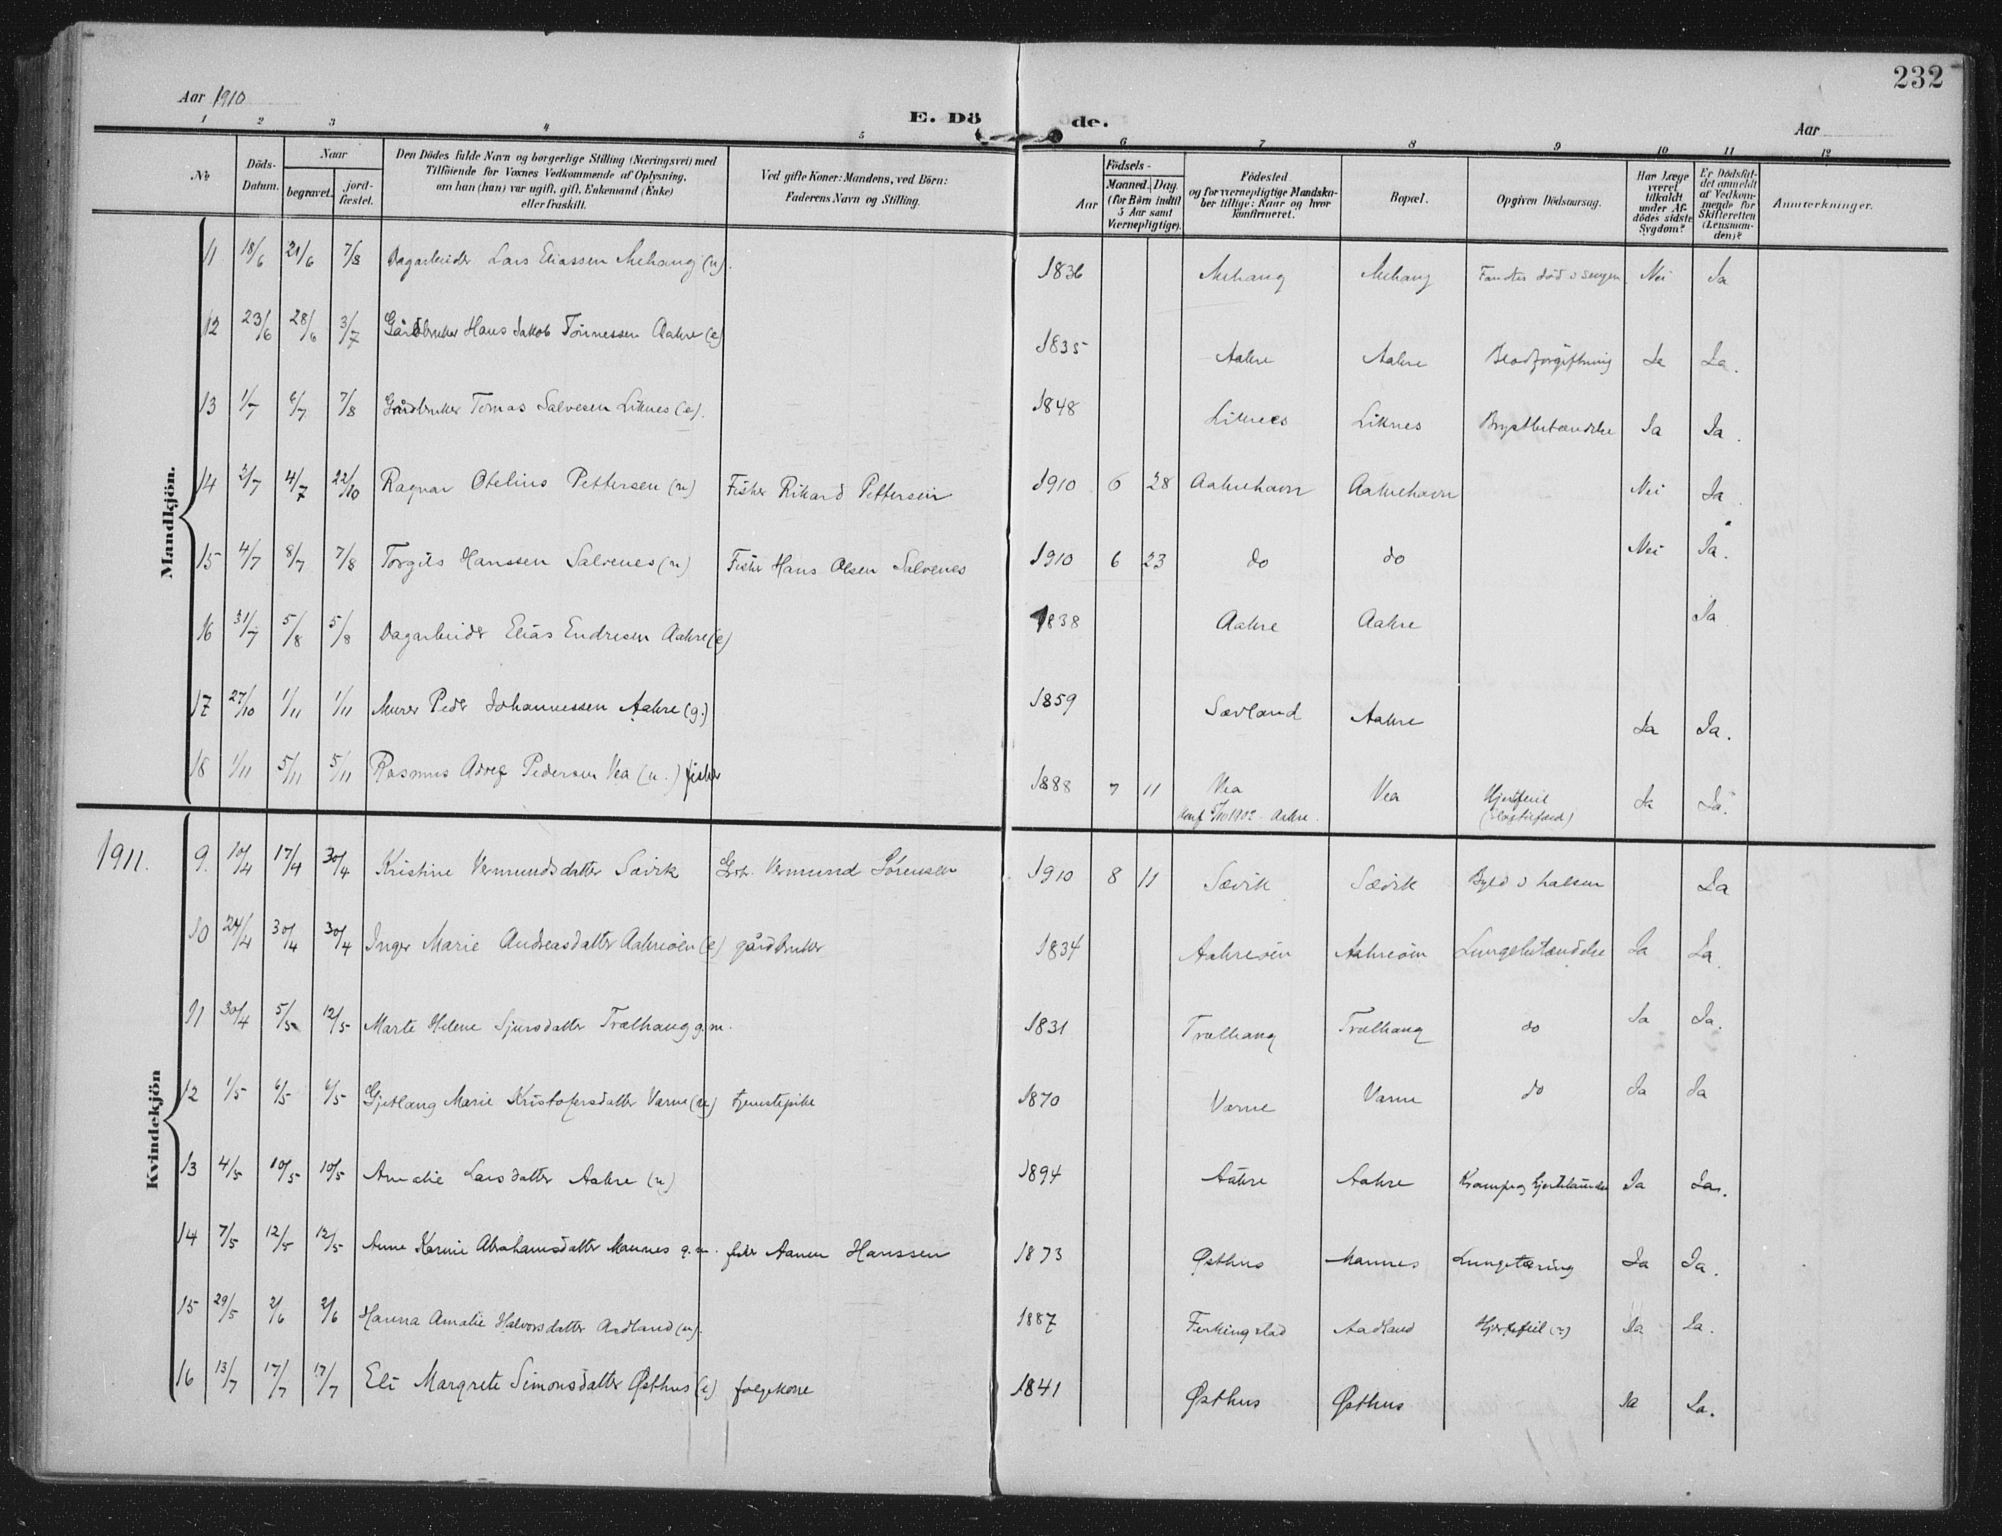 232
Aar 1910
E. Dö de.
Aar
1 2 3 4 5 6 7 8 9 10 11 12
No
Döds-Datum.
Naar
begravet.
jord-fæstet.
Den Dödes fulde Navn og borgerlige Stilling (Næringsvei) med
Tilföiende for Voxnes Vedkommende af Oplysning,
om han (hun) var ugift, gift, Enkemand (Enke)
eller fraskilt.
Ved gifte Koner: Mandens, ved Börn:
Faderens Navn og Stilling.
Födsels-
Aar
Maaned. Dag.
(for Børn indtil
5 Aar samt
Værnepligtige).
Födested
og for værnepligtige Mandska-
ber tillige: Naar og hvor
konfirmeret.
Bopæl.
Opgiven Dödsaarsag.
Har Læge
været
tilkaldt
under Af-
dödes sidste
Sygdom?
Er Dödsfal-
det anmeldt
af Vedkom-
mende for
Skifteretten
(Lensman-
den)?
Anmærkninger.
Mandkjön.
11 18/6 21/6 7/8 Dagarbeider Lars Eliassen Mehaug (u). 1836 Mehaug Mehaug Fandtes død i sengen Nei Ja
12 23/6 28/6 3/7 Gårdbruker Hans Jakob Tönnessen Aakre (e) 1835 Aakre Aakre Blodforgiftning Ja Ja.
13 1/7 6/7 7/8 Gårdbruker Tomas Salvesen Liknes (e). 1848 Liknes Liknes Brystbetændelse Ja Ja.
14 2/7 4/7 22/10 Ragnar Otelius Pettersen (u) Fisker Rikard Pettersen 1910 6 28 Aakrehavn Aakrehavn Nei Ja
15 4/7 8/7 7/8 Torgils Hanssen Salvenes (u) Fisker Hans Olsen Salvenes 1910 6 23 do do Nei Ja.
16 31/7 5/8 5/8 Dagarbeider Elias Endresen Aakre (e) 1838 Aakre Aakre Ja
17 27/10 1/11 1/11 Murer Peder Johannessen Aakre (g.) 1859 Sævland Aakre Ja Ja.
18 1/11 5/11 5/11 Rasmus Adolf Pedersen Vea (u.) fisker 1888 7 11 Vea Vea Hjertfeil Ja Ja.
Konf 1902 - Aakre.
1911.
Kvindekjön
9. 10/4 17/4 30/4 Kristine Vermundsdatter Sævik Grbr. Vermund Sørensen 1910 8 11 Sævik Sævik Byld i halsen Ja
10 24/4 30/4 30/4 Inger Marie Andreasdatter Aakreöen (e) gårdbruker 1834 Aakreöen Aakreöen Lungebetændelse Ja Ja.
11 30/4 5/5 12/5 Marte Helene Sjursdatter Trælhaug g.m. 1831 Trælhaug Trælhaug do Ja Ja.
12 1/5 6/5 6/5 Gjetlaug Marie Kristofersdatter Varne (u) tjenestepike 1870 Varne Varne do Ja Ja
13 4/5 10/5 10/5 Amalie Larsdatter Aakre (u) 1894 Aakre Aakre Krampe og Ja Ja.
14 7/5 12/5 12/5 Anne Karine Abrahamsdatter Mannes g.m. fisker Aanen Hanssen 1873 Østhus Mannes Lungetæring Ja Ja.
15 29/5 2/6 2/6 Hanna Amalie Halvorsdatter Aadland (u). 1887 Ferkingstad Aadland Hjertefeil (?) Ja Ja.
16 13/7 17/7 17/7 Eli Margrete Simonsdatter Østhus (e) folgekone 1841 Østhus Østhus Ja Ja.